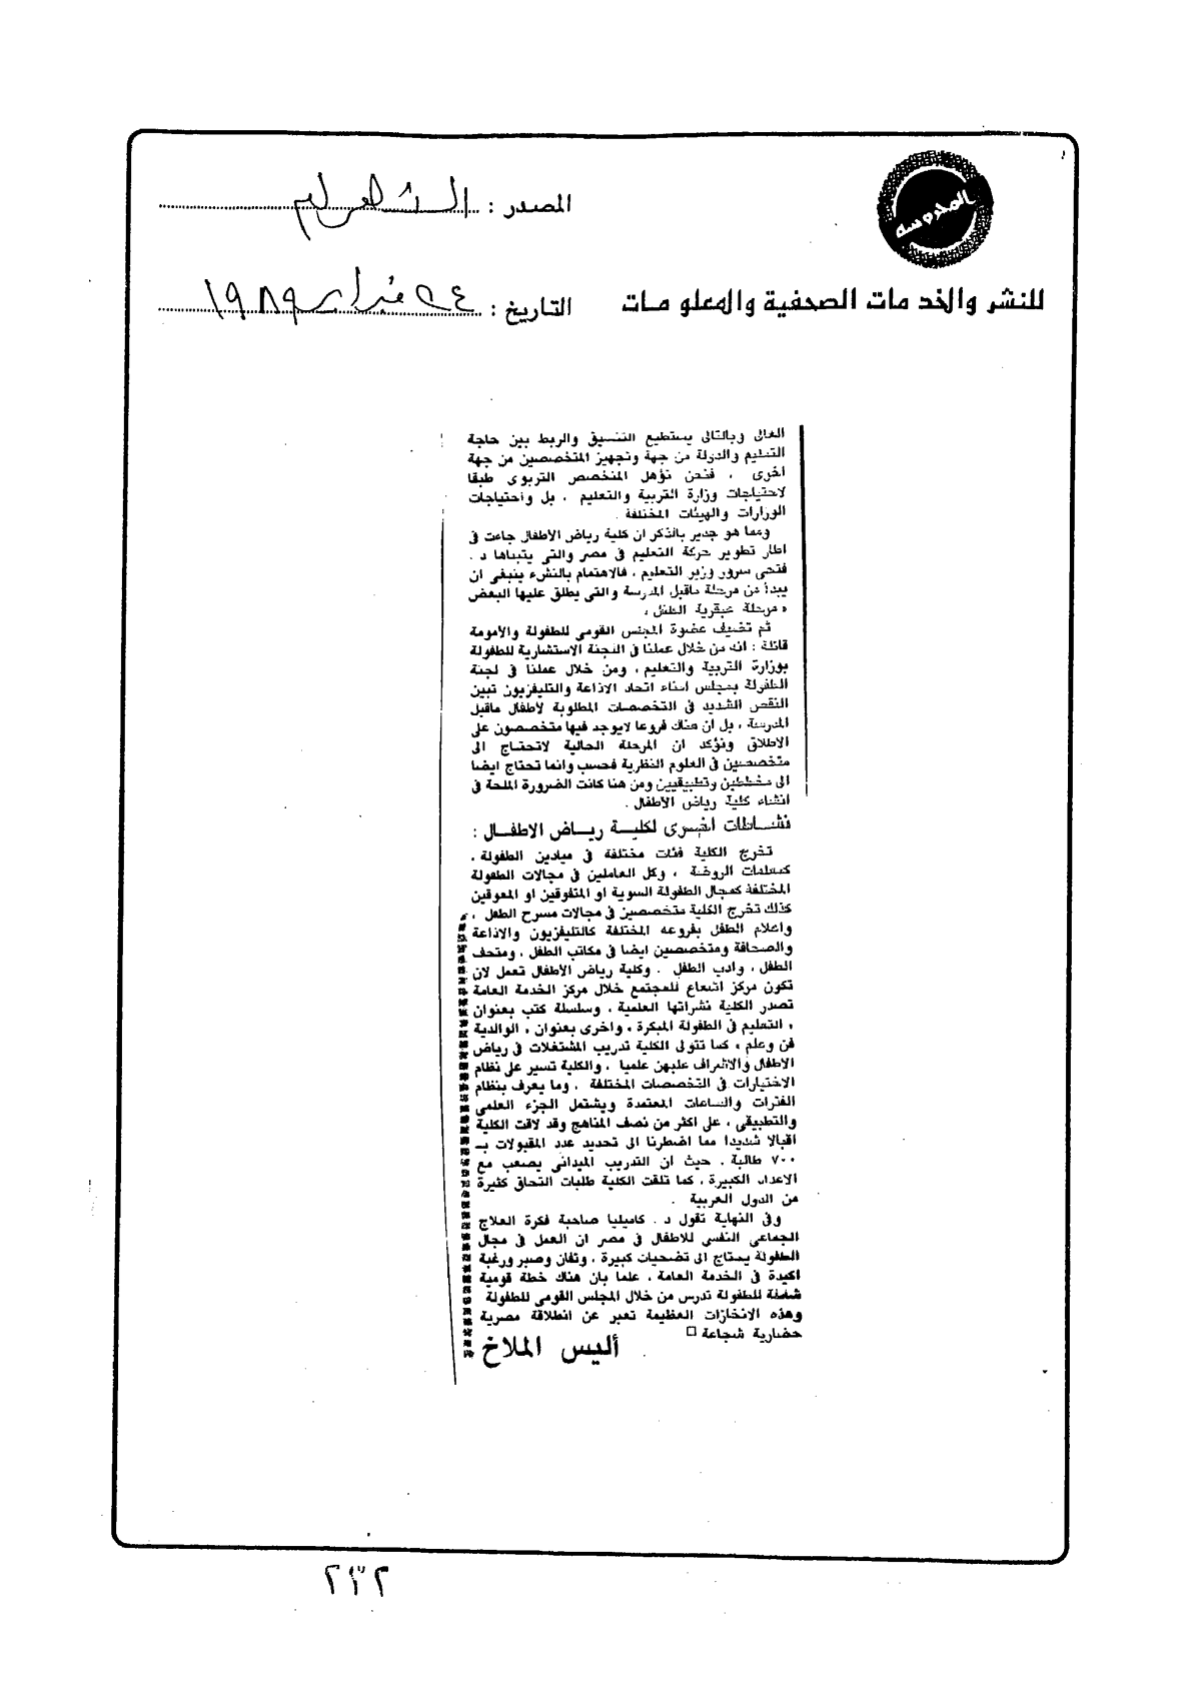 المحروسة
المصدر :
للنشر والخدمات الصحفية والمعلومات
التاريخ : ٢٤ فبراير ١٩٨٩
العالى وبالتالى يستطيع التنسيق والربط بين حاجة
التعليم والدولة من جهة وتجهيز المتخصصين من جهة
اخرى . فنحن نؤهل المتخصص التربوى طبقا
لاحتياجات وزارة التربية والتعليم ، بل واحتياجات
الوزارات والهيئات المختلفة .
ومما هو جدير بالذكر ان كلية رياض الاطفال جاءت فى
اطار تطوير حركة التعليم فى مصر والتى يتبناها د .
فتحى سرور وزير التعليم ، فالاهتمام بالنشء ينبغى ان
يبدأ من مرحلة ماقبل المدرسة والتى يطلق عليها البعض
« مرحلة عبقرية الطفل »
ثم تضيف عضوة المجلس القومى للطفولة والأمومة
قائلة : انه من خلال عملنا فى اللجنة الاستشارية للطفولة
بوزارة التربية والتعليم ، ومن خلال عملنا فى لجنة
الطفولة بمجلس امناء اتحاد الاذاعة والتليفزيون تبين
النقص الشديد فى التخصصات المطلوبة لأطفال ماقبل
المدرسة ، بل ان هناك فروعا لايوجد فيها متخصصون على
الاطلاق ونؤكد ان المرحلة الحالية لاتحتاج الى
متخصصين فى العلوم النظرية فحسب وانما تحتاج ايضا
الى مخططين وتطبيقيين ومن هنا كانت الضرورة الملحة فى
انشاء كلية رياض الاطفال .
نشاطات اخرى لكلية رياض الاطفال :
تخرج الكلية فئات مختلفة فى ميادين الطفولة ،
كمعلمات الروضة ، وكل العاملين فى مجالات الطفولة
المختلفة كمجال الطفولة السوية او المتفوقين او المعوقين
كذلك تخرج الكلية متخصصين فى مجالات مسرح الطفل ،
واعلام الطفل بفروعه المختلفة كالتليفزيون والاذاعة
والصحافة ومتخصصين ايضا فى مكاتب الطفل ، ومتحف
الطفل ، وادب الطفل . وكلية رياض الاطفال تعمل لان
تكون مركز اشعاع للمجتمع خلال مركز الخدمة العامة
تصدر الكلية نشراتها العلمية ، وسلسلة كتب بعنوان
« التعليم فى الطفولة المبكرة » واخرى بعنوان « الوالدية
فن وعلم » كما تتولى الكلية تدريب المشتغلات فى رياض
الاطفال والاشراف عليهن علميا ، والكلية تسير على نظام
الاختيارات فى التخصصات المختلفة ، وما يعرف بنظام
الفترات والساعات المعتمدة ويشتمل الجزء العلمى
والتطبيقى ، على اكثر من نصف المناهج وقد لاقت الكلية
اقبالا شديدا مما اضطرنا الى تحديد عدد المقبولات بـ
٧٠٠ طالبة . حيث ان التدريب الميدانى يصعب مع
الاعداد الكبيرة ، كما تلقت الكلية طلبات التحاق كثيرة
من الدول العربية .
وفى النهاية تقول د . كاميليا صاحبة فكرة العلاج
الجماعى النفسى للاطفال فى مصر ان العمل فى مجال
الطفولة يحتاج الى تضحيات كبيرة ، وتفان وصبر ورغبة
اكيدة فى الخدمة العامة ، علما بان هناك خطة قومية
شاملة للطفولة تدرس من خلال المجلس القومى للطفولة
وهذه الانجازات العظيمة تعبر عن انطلاقة مصرية
حضارية شجاعة □
أليس الملاخ
٢٣٢